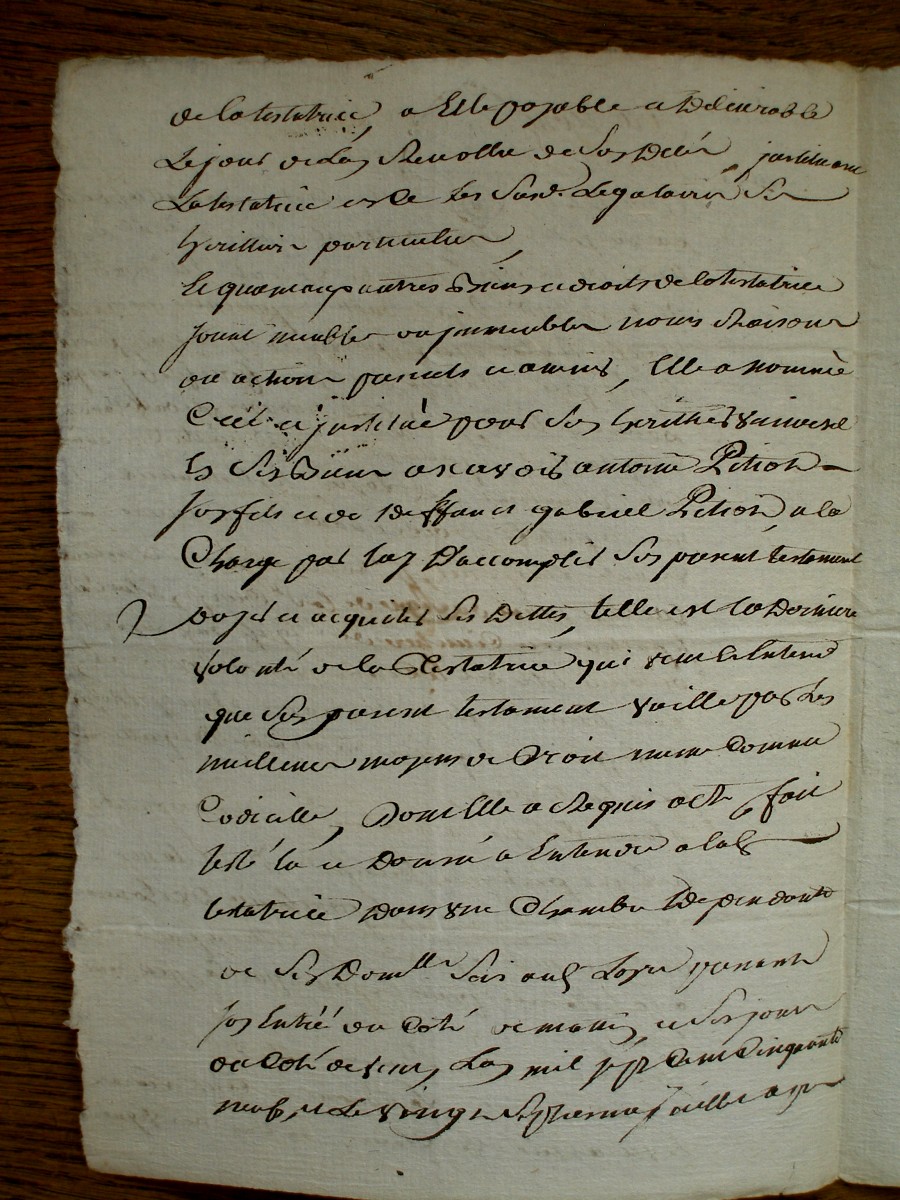 de la testatrice, a Elle payable et Delivrable
Le jour de Lan Revollu de son Deces, instituant
La testatrice celle les susd. Legataires ses
heritiers particuliers
Et quand aux autres Biens et droits de la testatrice
soint meubles ou immeubles noms Raisons
ou actions presents et avenir, Elle a nommé
Crée et institué pour son heritier universel
En ses Biens a scavoir antoine Pithon
son fils et de deffunt gabriel Pithon, a la
Charge par luy D'accomplir son present testament
payer et acquiter ses Dettes, telle est la Derniere
volonté de la Testatrice qui veut et Entend
que son present testament vaille par les
meilleurs moyens de Droit meme Comme
Codicille, Dont Elle a Requis acte, fait
leu et Donné a Entendre a la
testatrice Dans une Chambre Dependante
de son Domlle prenant
son Entrée du Coté de matin et son jour
du Coté de vent, Lan mil sept Cent Cinquante
neuf, et Le vingt septieme Juillet apres